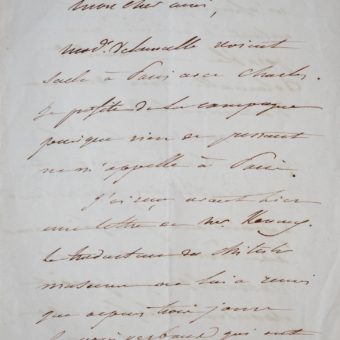 mon cher ami,
Mad. Delaunelle revient
seule à Paris avec Charles.
Je profite de la campagne
puisque rien de pressant
ne m'appelle à Paris.
J'ai reçu avant hier
une lettre de Mr
le traducteur du British
museum ne lui a remis
que depuis trois jours
qui ont